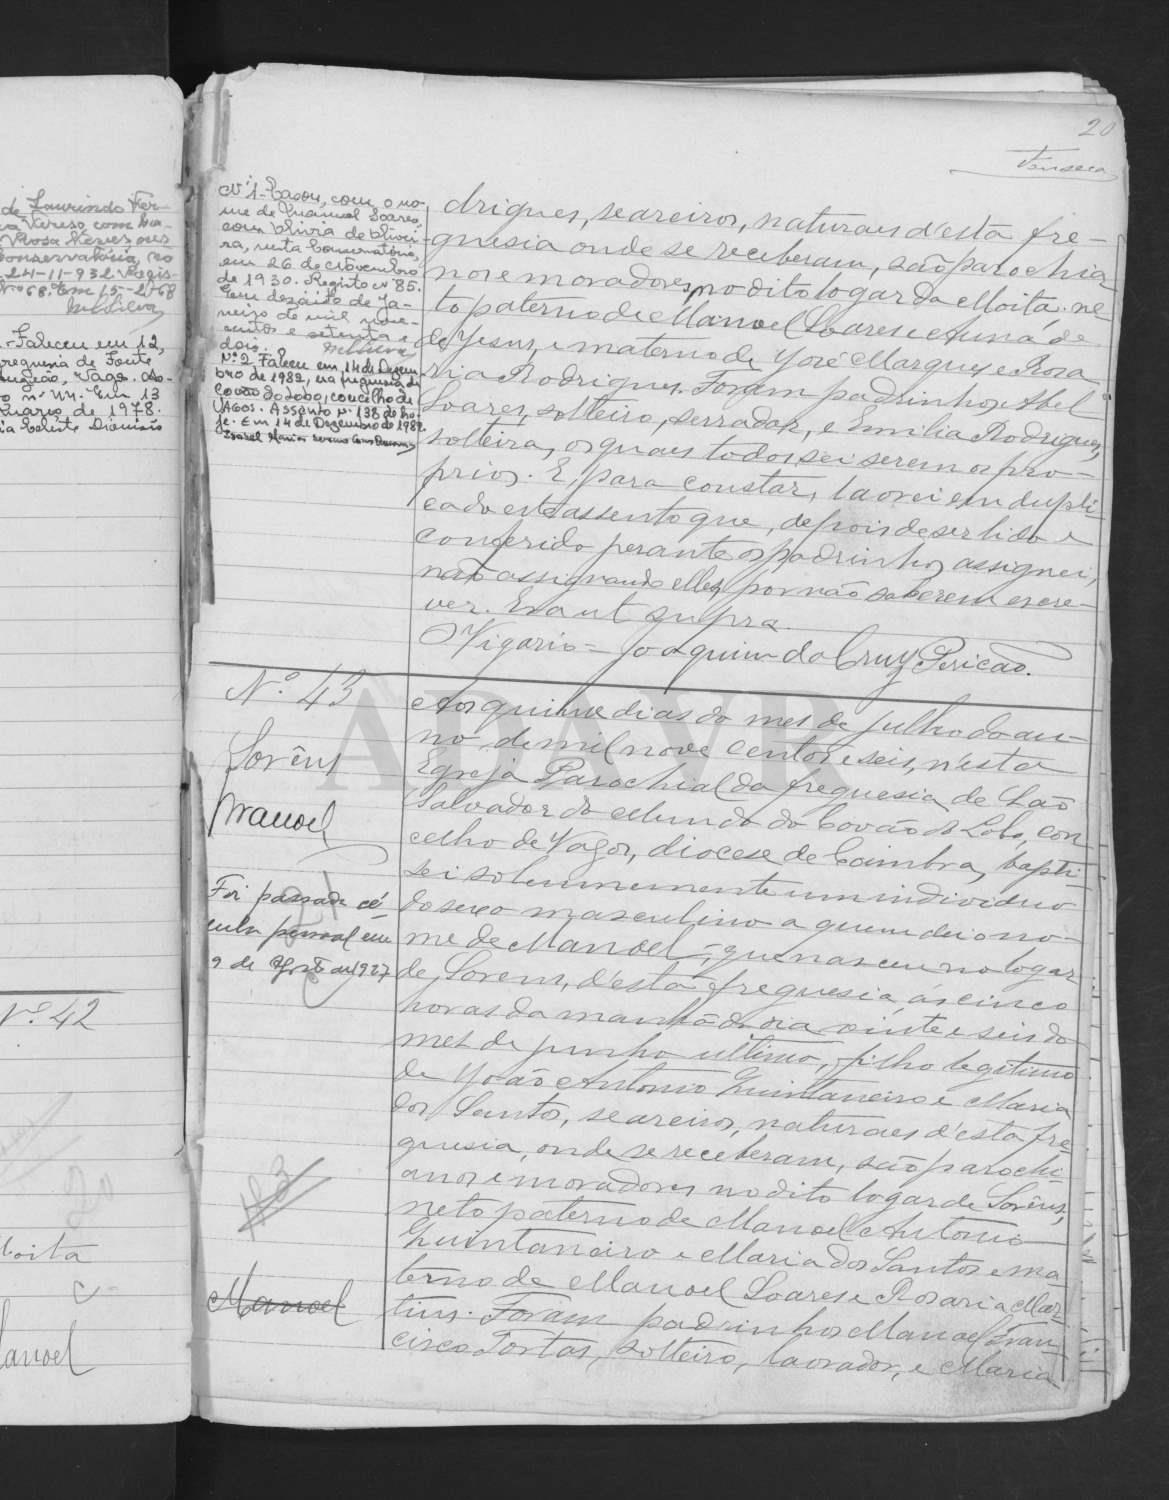 20
Fonseca
de Laurindo Fer-
Rosa Neves nes
Conservatória, no
24-11-932 Regis-
Nº 68. Em 15-2-68
MSilva
- Faleceu em 12,
freguesia de Fonte
Angeão, Vagos. As-
o nº 44. Em 13
de 1978.
Nº 42
Moita
Manoel
Nº 1 - Casou, com o no-
me de Manuel Soares,
com Olivia de Olivei-
ra, nesta Conservatória,
em 26 de Novembro
de 1930. Registo nº 85.
Em dezoito de Ja-
neiro de mil nove-
centos e setenta e
dois.
Nº 2 Faleceu em 14 de Dezem-
bro de 1982, na freguesia de
Covão do Lobo, concelho de
Vagos. Assento nº 138 de ho-
je. Em 14 de Dezembro de 1982.
drigues, seareiros, naturaes d'esta fre-
guesia onde se receberam, são parochia-
nos e moradores no dito logar da Moita; ne-
to paterno de Manoel Soares e Anna de
de Jesus, e materno de José Marques e Rosa
ria Rodrigues. Foram padrinhos Abel
Soares, solteiro, serrador, e Emilia Rodrigues,
solteira, os quaes todos sei serem os pro-
prios. E para constar, lavrei em dupli-
cado este assento que, depois de ser lido e
conferido perante os padrinhos assignei,
não assignando elles por não saberem escre-
ver. Era ut supra.
O Vigario = Joaquim da Cruz Pericão.
Nº 43
Sorêns
Manoel
Foi passada cé-
dula pessoal em
9 de Agosto de 1927
43
Manoel
Aos quinze dias do mes de julho do an-
no de mil nove centos e seis, n'esta
Egreja Parochial da freguesia de São
Salvador do Mundo do Covão do Lobo, con
celho de Vagos, diocese de Coimbra, bapti-
sei solemnemente um individuo
do sexo masculino a quem dei o no-
me de Manoel =; que nasceu no logar
de Sorens, d'esta freguesia, ás cinco
horas da manhã do dia vinte e seis do
mes de junho ultimo, filho legitimo
de João Antonio Quintaneiro e Maria
dos Santos, seareiros, naturaes d'esta fre-
guesia, onde se receberam, são parochi-
anos e moradores no dito logar de Sorêns,
neto paterno de Manoel Antonio
Quintaneiro e Maria dos Santos e ma-
terno de Manoel Soares e Rosaria Mar-
tins. Foram padrinhos Manoel Fran-
cisco Tortas, solteiro, lavrador, e Maria
ADAVR